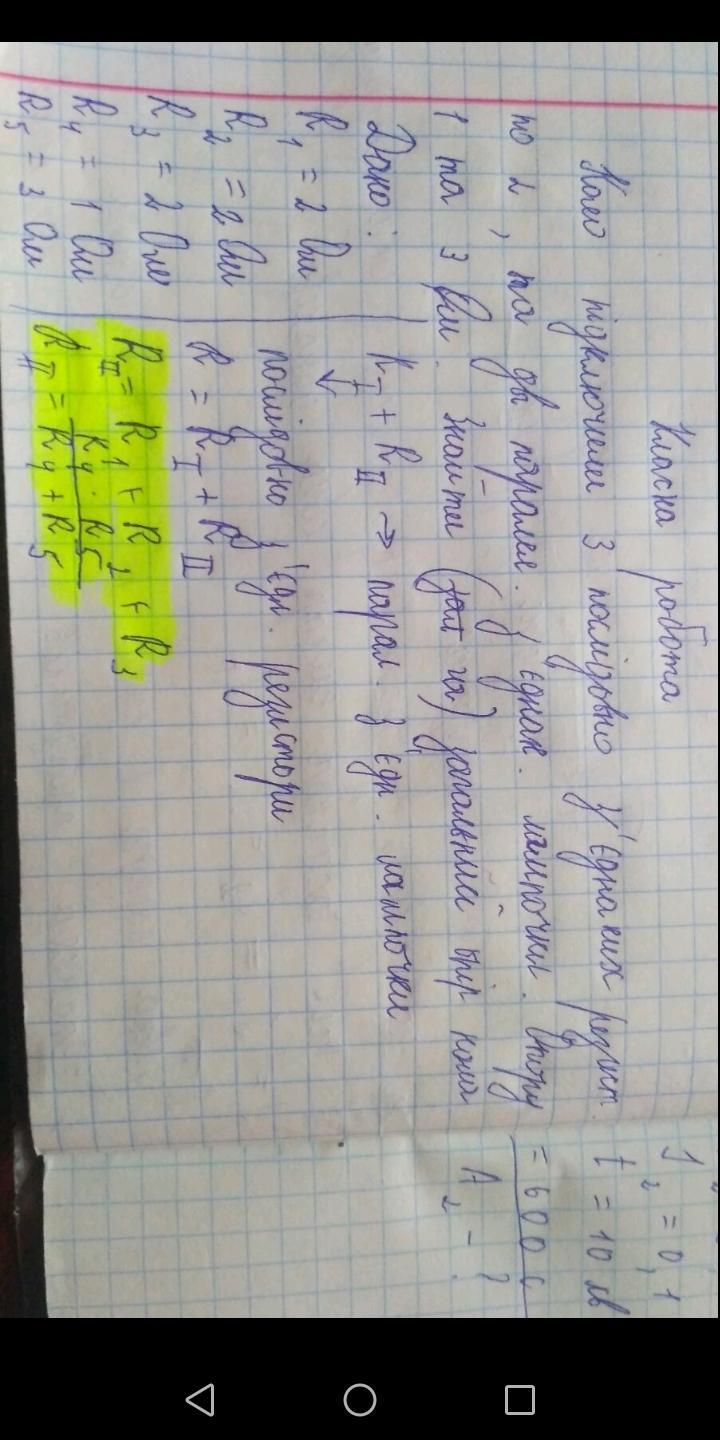 Класна робота
Коло підключили 3 послідовно з'єднаних резист.
по 2, та дві паралел. з'єднак. лампочки. Опору
1 та 3 Ом. Знайти загальний опір кола
Дано:
R1 = 2 Ом
R2 = 2 Ом
R3 = 2 Ом
R4 = 1 Ом
R5 = 3 Ом
RI + RII → парал. з'єдн. лампочки
↓
послідовно з'єдн. резистори
R = RI + RII
RII = R1 + R2 + R3
RII = R4 · R5 / R4 + R5
J2 = 0,1
t = 10 хв
= 600 с
A2 - ?